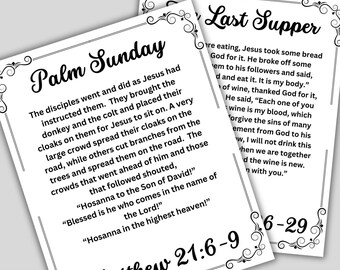 Palm Sunday
The disciples went and did as Jesus had
instructed them. They brought the
donkey and the colt and placed their
cloaks on them for Jesus to sit on. A very
large crowd spread their cloaks on the
road, while others cut branches from the
trees and spread them on the road. The
crowds that went ahead of him and those
that followed shouted,
"Hosanna to the Son of David!"
"Blessed is he who comes in the name of
the Lord!"
"Hosanna in the highest heaven!"
21:6-9
Last Supper
eating, Jesus took some bread
God for it. He broke off some
to his followers and said,
and eat it. It is my body."
of wine, thanked God for it,
He said, "Each one of you
wine is my blood, which
forgive the sins of many
from God to his
will not drink this
when we are together
the wine is new.
with you."
6-29